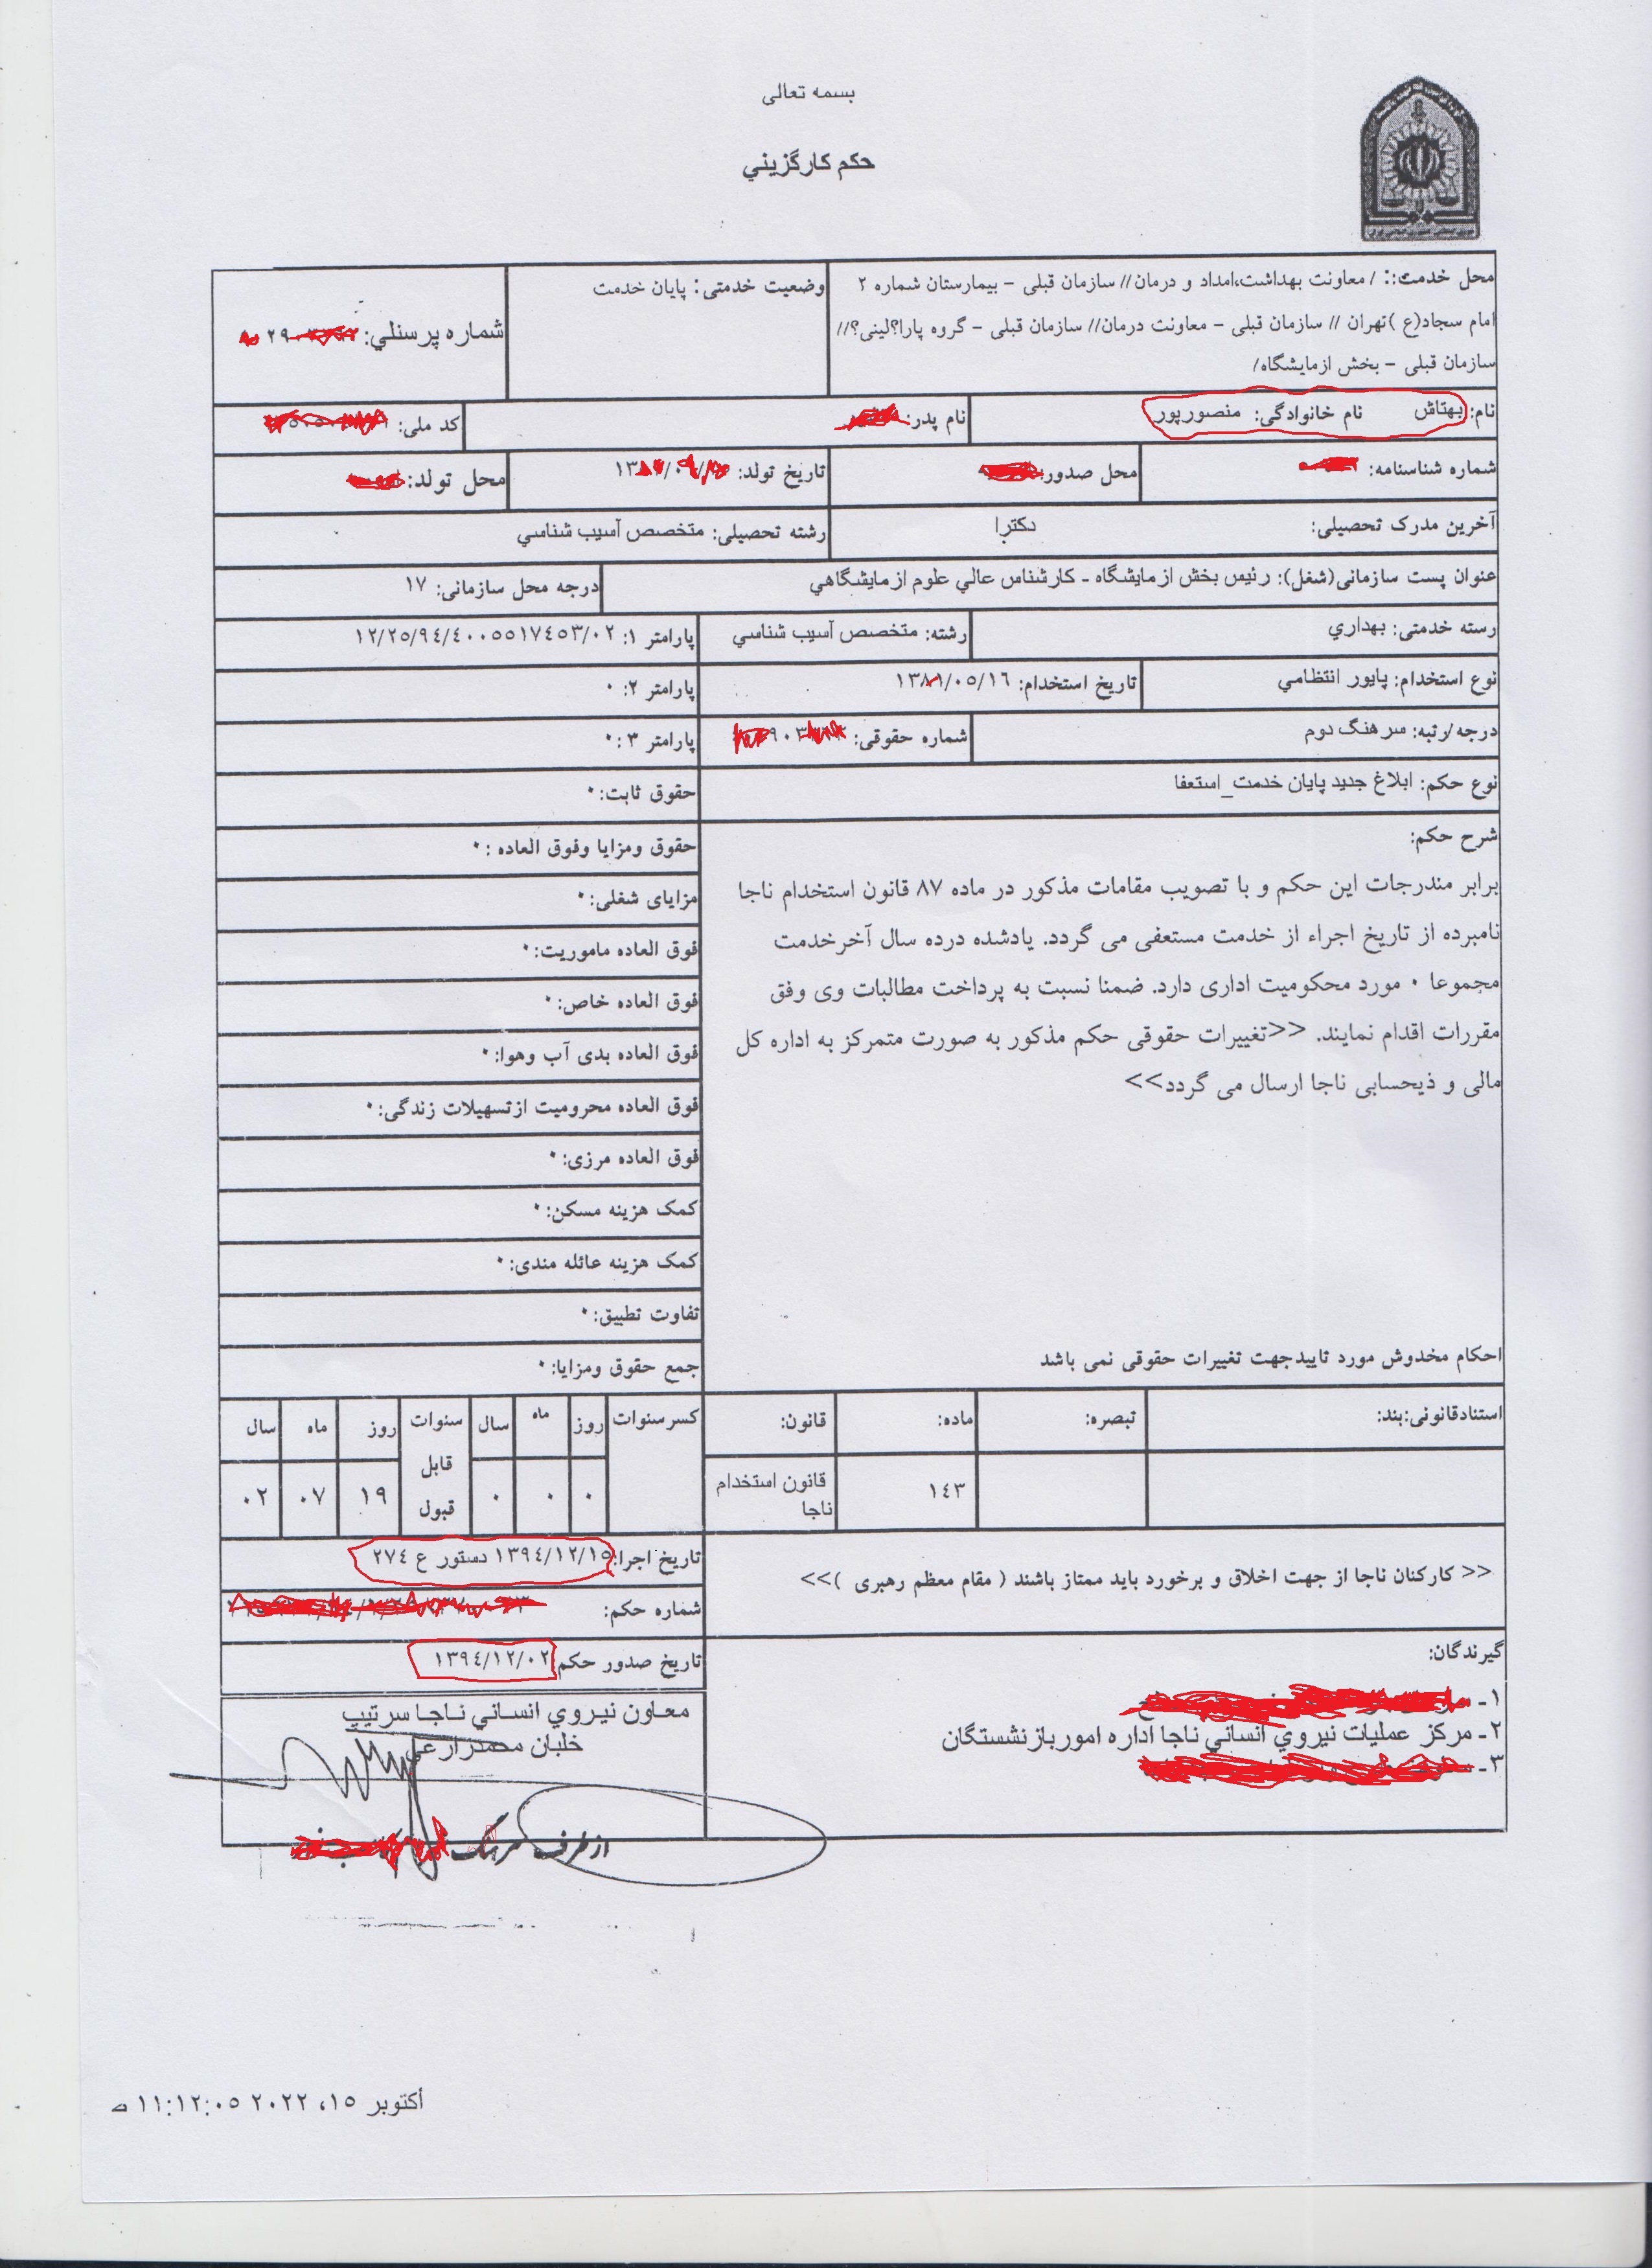 بسمه تعالی
حکم کارگزیني
محل خدمت:: / معاونت بهداشت،امداد و درمان// سازمان قبلی - بیمارستان شماره ۲
امام سجاد(ع )تهران // سازمان قبلی - معاونت درمان// سازمان قبلی - گروه پارا؟لینی؟//
سازمان قبلی - بخش ازمایشگاه/
وضعیت خدمتی: پایان خدمت
شماره پرسنلي: ۲۹
نام: بهتاش نام خانوادگی: منصورپور
نام پدر:
کد ملی:
شماره شناسنامه:
محل صدور:
تاریخ تولد: ۱۳
محل تولد:
آخرین مدرک تحصیلی: دکترا
رشته تحصیلی: متخصص آسیب شناسي
عنوان پست سازمانی(شغل): رئیس بخش ازمایشگاه - کارشناس عالي علوم ازمایشگاهي
درجه محل سازمانی: ۱۷
رسته خدمتی: بهداري
رشته: متخصص آسیب شناسي
پارامتر ۱: ۱۲/۲۵/۹٤/٤۰۰۵۵۱۷٤۵۳/۰۲
نوع استخدام: پایور انتظامي
تاریخ استخدام: ۱۳۸۱/۰۵/۱۶
پارامتر ۲: ۰
درجه/رتبه: سرهنگ دوم
شماره حقوقی: ۹۰۳
پارامتر ۳ :۰
نوع حکم: ابلاغ جدید پایان خدمت_استعفا
حقوق ثابت:۰
شرح حکم:
برابر مندرجات این حکم و با تصویب مقامات مذکور در ماده ۸۷ قانون استخدام ناجا
نامبرده از تاریخ اجراء از خدمت مستعفی می گردد. یادشده درده سال آخرخدمت
مجموعا ۰ مورد محکومیت اداری دارد. ضمنا نسبت به پرداخت مطالبات وی وفق
مقررات اقدام نمایند. <<تغییرات حقوقی حکم مذکور به صورت متمرکز به اداره کل
مالی و ذیحسابی ناجا ارسال می گردد>>
احکام مخدوش مورد تاییدجهت تغییرات حقوقی نمی باشد
حقوق ومزایا وفوق العاده :۰
مزایای شغلی:۰
فوق العاده ماموریت:۰
فوق العاده خاص:۰
فوق العاده بدی آب وهوا:۰
فوق العاده محرومیت ازتسهیلات زندگی:۰
فوق العاده مرزی:۰
کمک هزینه مسکن:۰
کمک هزینه عائله مندی:۰
تفاوت تطبیق:۰
جمع حقوق ومزایا:۰
استنادقانونی:بند: تبصره: ماده: قانون:
۱٤۳ قانون استخدام
ناجا
کسرسنوات روز ماه سال
۰ ۰ ۰
سنوات
قابل
قبول
روز ماه سال
۱۹ ۰۷ ۰۲
<< کارکنان ناجا از جهت اخلاق و برخورد باید ممتاز باشند ( مقام معظم رهبری )>>
تاریخ اجرا: ۱۳۹٤/۱۲/۱۵ دستور ع ۲۷٤
شماره حکم:
تاریخ صدور حکم ۱۳۹٤/۱۲/۰۲
گیرندگان:
۱-
۲- مرکز عملیات نیروي انساني ناجا اداره اموربازنشستگان
۳-
معاون نیروي انساني ناجا سرتیپ
خلبان محمدزارعي
از طرف سرهنگ
أكتوبر ۱۵، ۲۰۲۲ ۱۱:۱۲:۰۵ ص